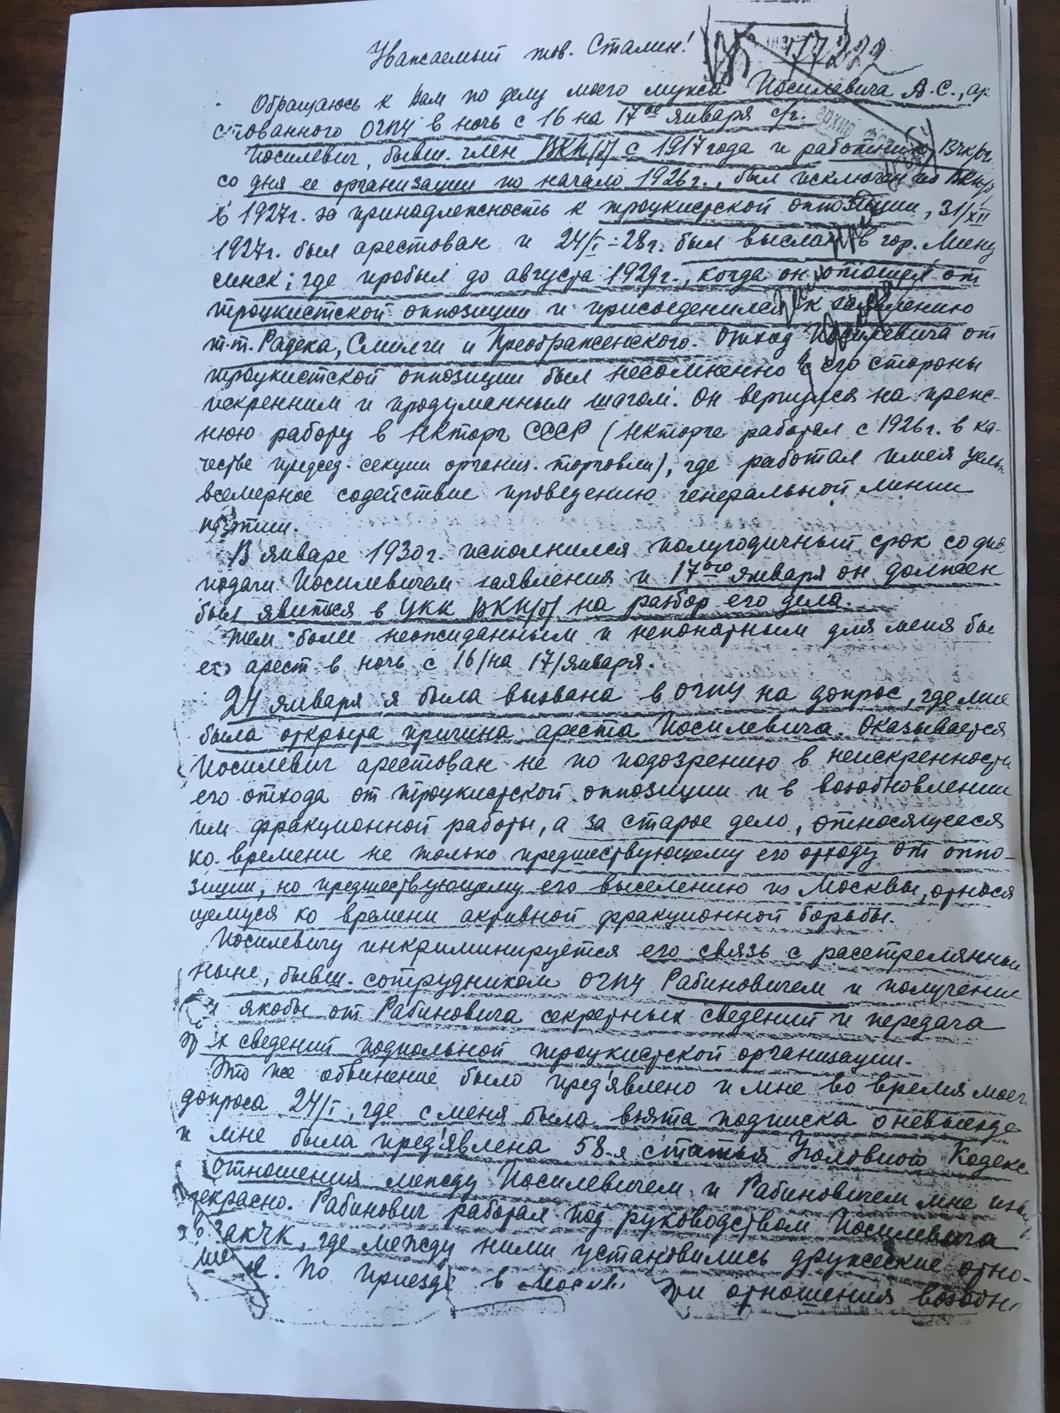 Уважаемый тов. Сталин!
17222
Обращаюсь к Вам по делу моего мужа Иосилевича А.С., аре
стованного ОГПУ в ночь с 16 на 17ое января с/г.
Иосилевич, бывш. член ВКП/б/ с 1917 года и работник ВЧК
со дня ее организации по начало 1926г., был исключен из ВКП/б
в 1927г. за принадлежность к троцкистской оппозиции, 31/XII
1927г. был арестован и 24/I-28г. был выслан в гор. Мину
синск; где пробыл до августа 1929г., когда он отошел от
троцкистской оппозиции и присоединился к заявлению
т.т. Радека, Смилги и Преображенского. Отход Иосилевича от
троцкистской оппозиции был несомненно с его стороны
искренним и продуманным шагом. Он вернулся на преж-
нюю работу в НКторг СССР (НКторге работал с 1926г. в ка-
честве председ. секции организ. торговли), где работал имея цель
всемерное содействие проведению генеральной линии
партии.
В январе 1930г. исполнился полугодичный срок со дня
подачи Иосилевичем заявления и 17ого января он должен
был явиться в ЦКК ВКП/б/ на разбор его дела.
Тем более неожиданным и непонятным для меня был
его арест в ночь с 16/на 17/января.
24 января я была вызвана в ОГПУ на допрос, где мне
была открыта причина ареста Иосилевича. Оказывается
Иосилевич арестован не по подозрению в неискренности
его отхода от троцкистской оппозиции и в возобновлении
им фракционной работы, а за старое дело, относящееся
ко времени не только предшествующему его отходу от оппо-
зиции, но предшествующему его выселению из Москвы, относя
щемуся ко времени активной фракционной борьбы.
Иосилевичу инкриминируется его связь с расстрелянным
ныне, бывш. сотрудником ОГПУ Рабиновичем и получение
якобы от Рабиновича секретных сведений и передача
эт х сведений подпольной троцкистской организации.
Это же обвинение было предявлено и мне во время моего
допроса 24/I, где с меня была взята подписка о невыезде
и мне была предъявлена 58-я статья Уголовного Кодекс
Отношения между Иосилевичем и Рабиновичем мне изве
прекрасно. Рабинович работал под руководством Иосилевича
в ЗакЧК, где между ними установились дружеские отно-
ше я. По приезде в Москв эти отношения возобн